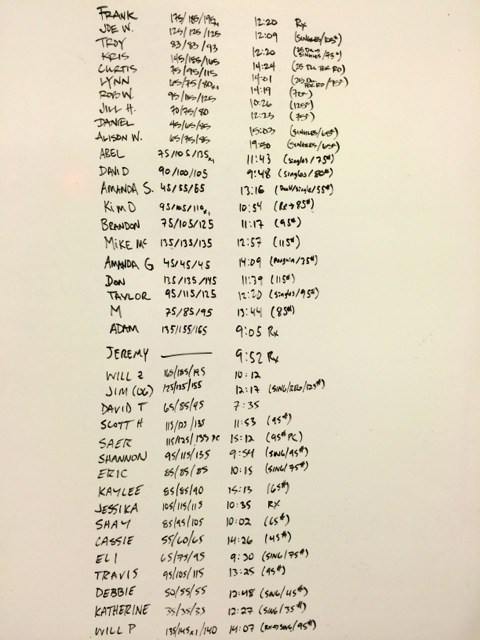 FRANK 175/185/195x1 12:20 Rx
JOE W. 125/125/125 12:09 (SINGLES/105#)
TROY 83/83/93 12:20
KRIS 145/155/165 14:24 (SINGLES/75#)
CURTIS 75/95/115 14:01
LYNN 65/75/80x1 14:19
ROB W. 95/115/125 10:26 (125#)
JILL H. 70/75/80 12:23 (75#)
DANIEL 45/65/85 15:03 (SINGLES/65#)
ALISON W. 65/75/85 19:50 (SINGLES/65#)
ABEL 75/105/135x1 11:43 (Singles/75#)
DAVID 90/100/105 9:48 (singles/80#)
AMANDA S. 45/55/65 13:16
KIM D 95/105/110x1 10:54 (Rx→85#)
BRANDON 75/105/125 11:17 (95#)
MIKE MC 135/135/135 12:57 (115#)
AMANDA G 45/45/45 14:09 (Penguin/35#)
DON 135/135/145 11:39 (115#)
TAYLOR 95/115/125 12:20 (Singles/95#)
M 75/85/95 13:44 (85#)
ADAM 135/155/165 9:05 Rx
JEREMY 9:52 Rx
WILL Z 165/185/195 10:12
JIM (OG) 125/135/155 12:17 (SING/REG/125#)
DAVID T 65/85/95 7:35
SCOTT H 115/ /135 11:53 (95#)
SAER 115/125/135 PC 15:12 (95# PC)
SHANNON 95/115/135 9:54 (SING/95#)
ERIC 85/85/85 10:15 (SING/75#)
KAYLEE 85/85/90 15:13 (65#)
JESSIKA 105/115/115 10:35 RX
SHAY 85/95/105 10:02 (65#)
CASSIE 55/60/65 14:26 (45#)
ELI 65/75/95 9:30 (SING/75#)
TRAVIS 95/105/115 13:25 (95#)
DEBBIE 50/55/55 12:48 (SING/45#)
KATHERINE 35/35/35 12:27 (SING/35#)
WILL P 135/145x1/140 14:07